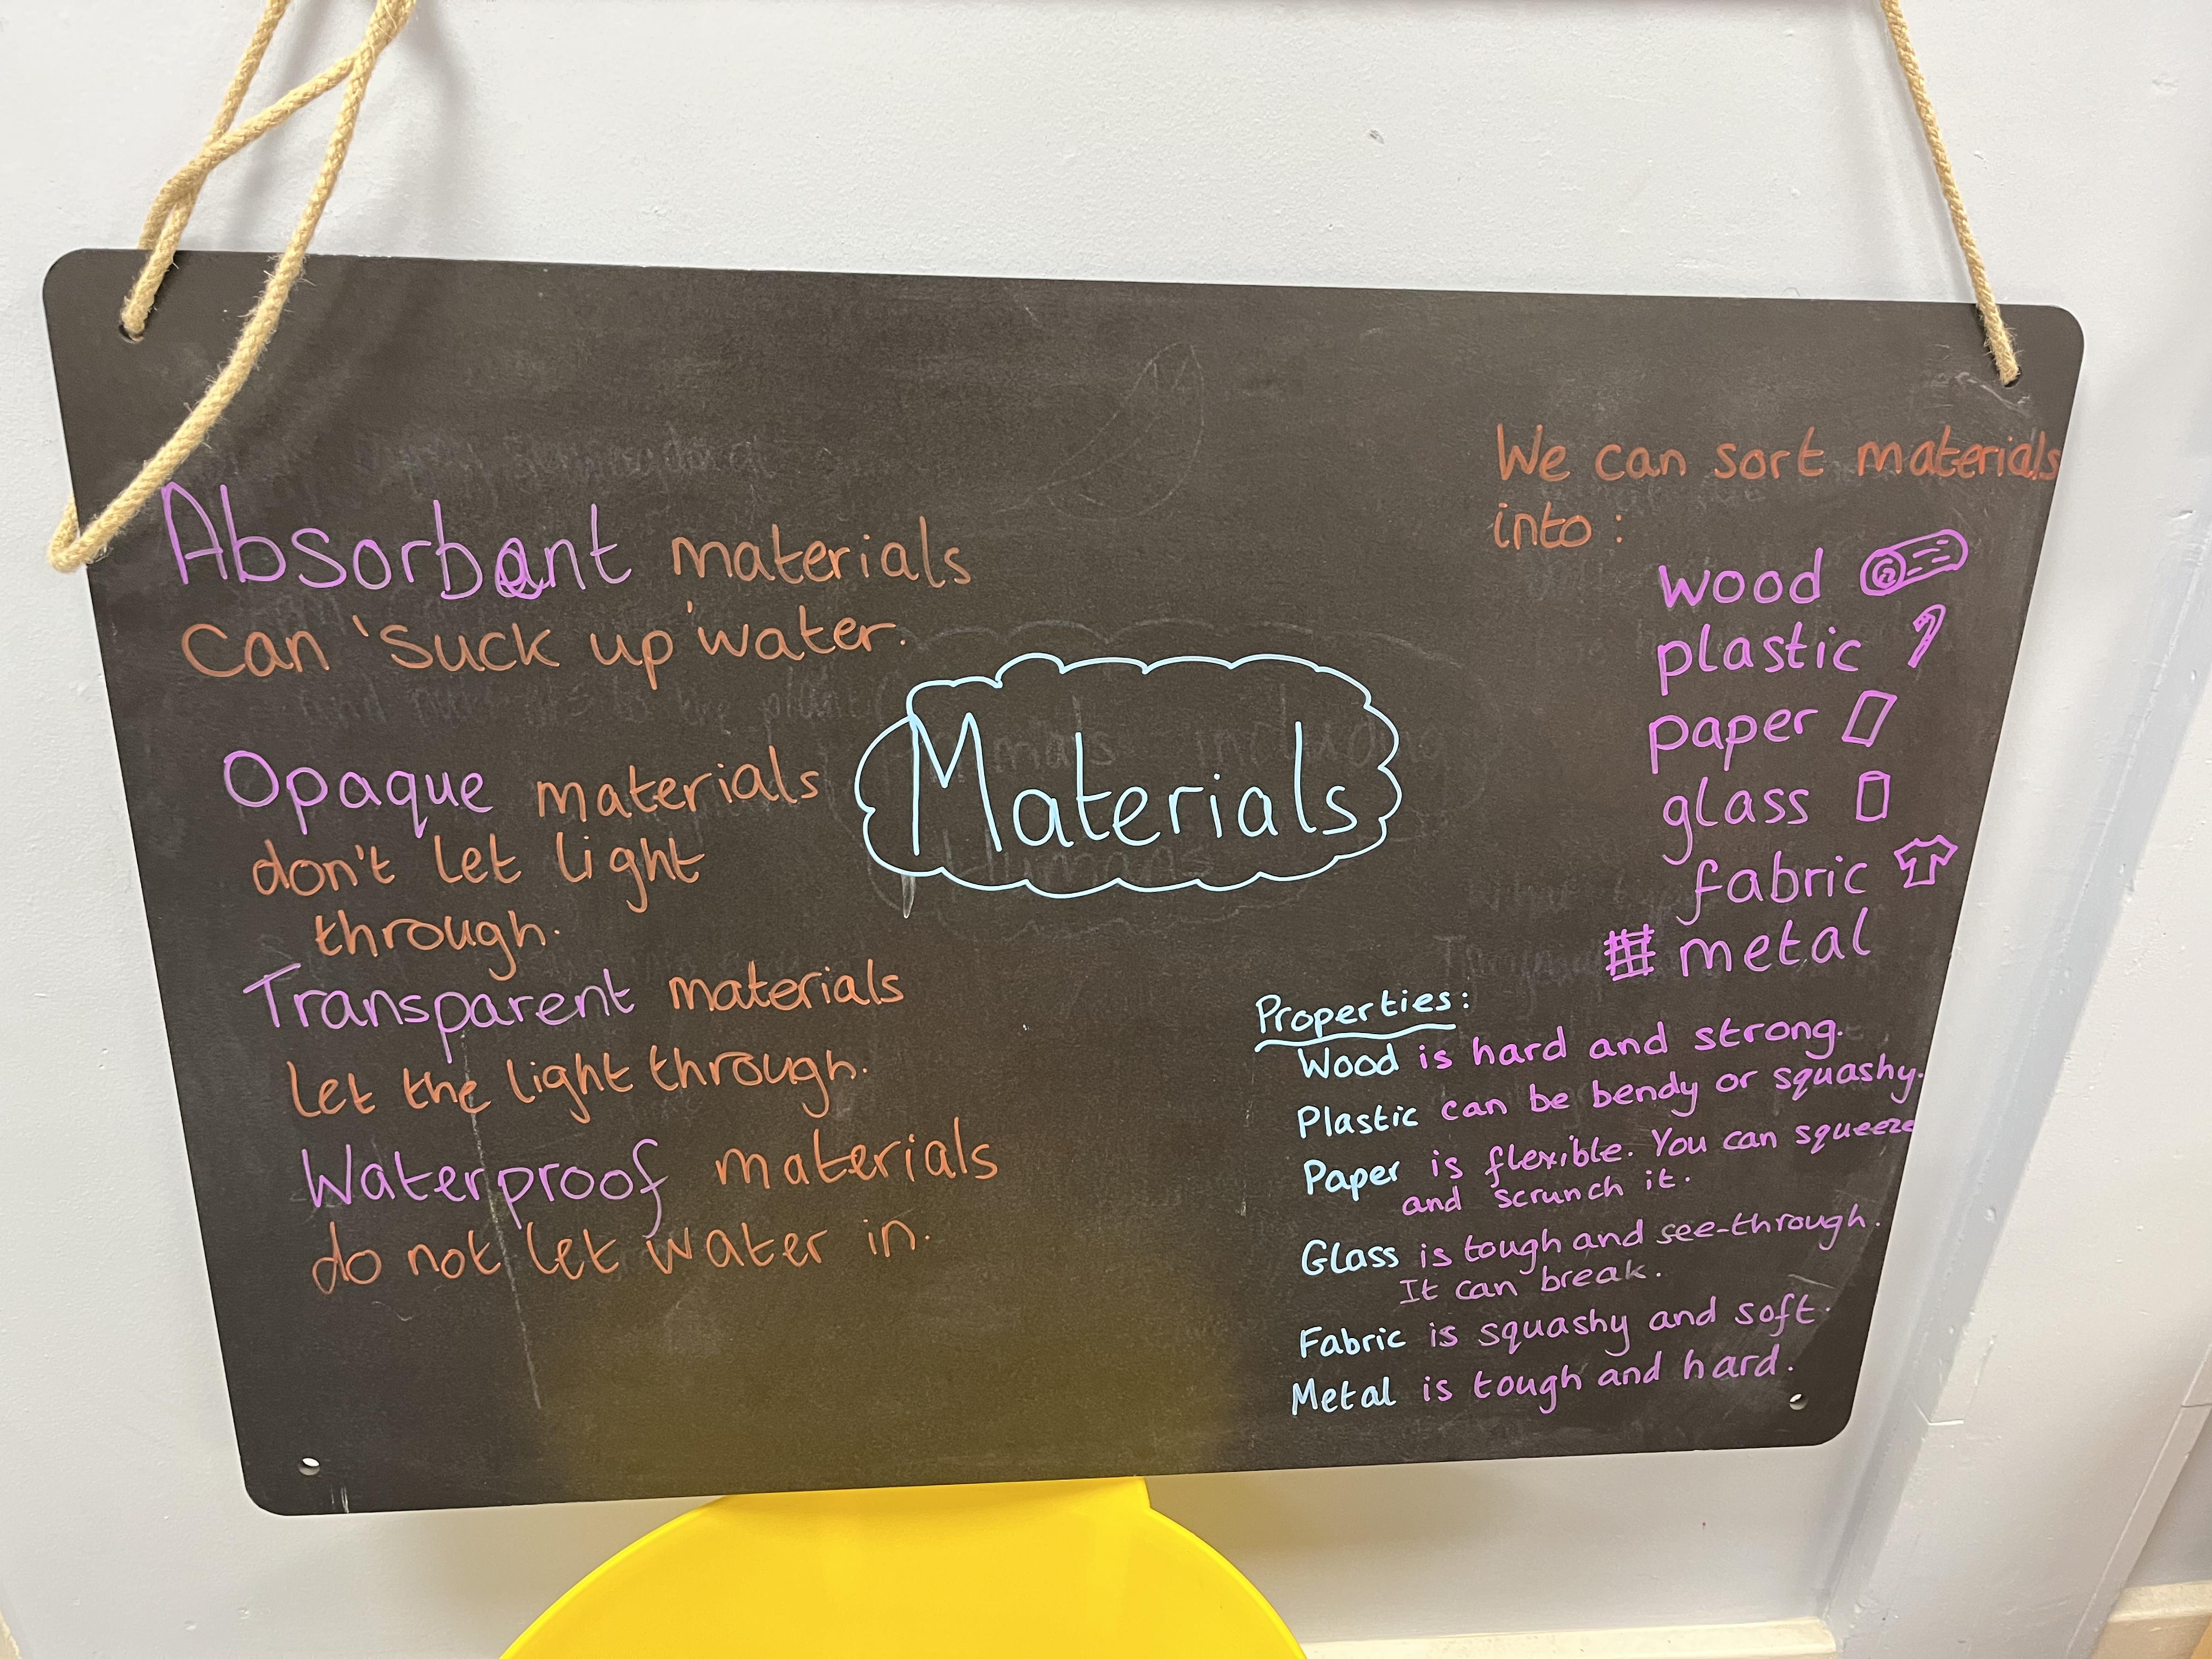 Absorbant materials
can 'suck up' water.
Opaque materials
don't let light
through.
Transparent materials
let the light through.
Waterproof materials
do not let water in.
Materials
We can sort materials
into :
wood
plastic
paper
glass
fabric
metal
Properties:
Wood is hard and strong.
Plastic can be bendy or squashy.
Paper is flexible. You can squeeze
and scrunch it.
Glass is tough and see-through.
It can break.
Fabric is squashy and soft.
Metal is tough and hard.